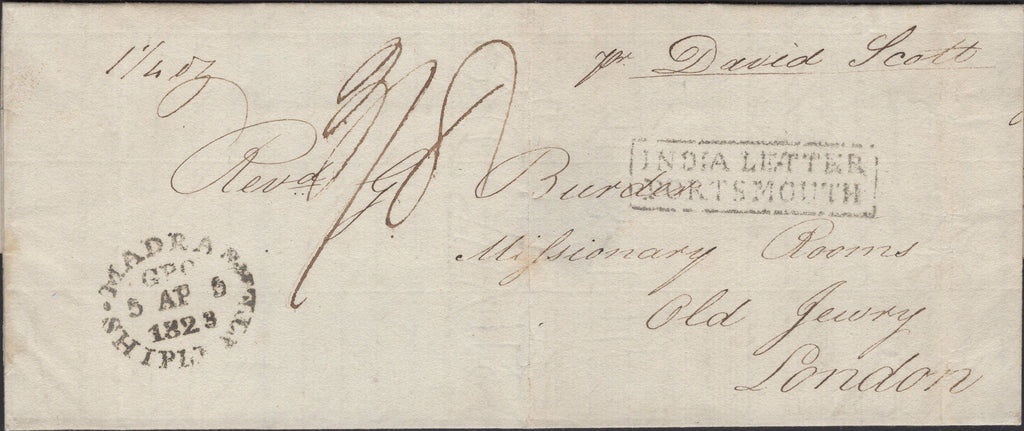 1 1/4 oz
pr David Scott
3/8
INDIA LETTER
PORTSMOUTH
Revd G Burder
Missionary Rooms
Old Jewry
London
MADRAS
GPO
5 AP 5
1823
SHIP LETTER